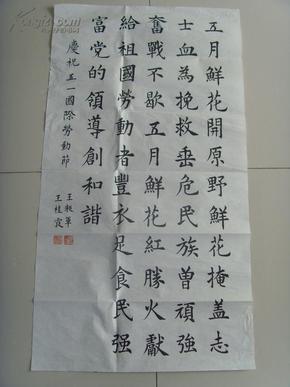 五月鮮花開原野鮮花掩盖志
士血為挽救垂危民族曾頑強
奮戰不歇五月鮮花紅勝火獻
給祖國勞動者豐衣足食民强
富党的領導創和諧
慶祝五一國際勞動節
王桂霞